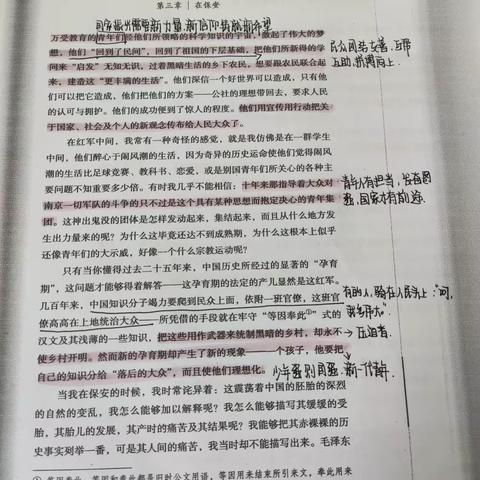 第三章 | 在保安
国家振兴需要新力量,新信仰势就新希望
万受教育的青年们经他们所领略的科学知识的宇宙,激起了伟大的梦
想,他们“回到了民间”,回到了祖国的下层基础,把他们所新得的学
问来“启发”无知无识,过着黑暗生活的乡下农民,想要跟农民联合起
来,建造这“更丰满的生活”。他们深信一个好世界可以造成,只有他
们可以把它造成,他们把他们的方案——公社的理想带回去,要求人民
的认可与拥护。他们的成功便到了惊人的程度。他们用宣传用行动把关
于国家、社会及个人的新观念传布给人民大众了。
民众团结友善,互帮
互助,共同向上。
在红军中间,我常有一种奇怪的感觉,就是我仿佛是在一群学生
中间,他们醉心于闹风潮的生活,因为奇异的历史运命使他们觉得闹风
潮的生活比足球竞赛、教科书、恋爱,或是别国青年们所关心的各种主
要问题不知重要多少倍。有时我几乎不能相信:十年来那指导着大众对
南京一切军队的斗争的只不过是这个具有某种思想而抱定决心的青年集
团。这神出鬼没的团体是怎样发动起来,集结起来,而且从什么地方发
生出力量来的呢?为什么这毕竟还达不到成熟期,为什么这根本上似乎
还像青年们的大示威,好像一个什么宗教运动呢?
青年人有担当,
国家才有前途。
只有当你懂得过去二十五年来,中国历史所经过的显著的“孕育
期”,这问题才能够得着解答——这孕育期的法定的产儿显然是这红军。
几百年来,中国知识分子竭力要爬到民众上面,依附一班官僚,这班官
僚高高在上地统治大众——所凭借的手段就在牢守“等因奉此①”式的
汉文及其浅薄的一些知识,把这些用作武器来统制黑暗的乡村,却永不
使乡村开明。然而新的孕育期却产生了新的现象——一个孩子,他要把
自己的知识分给“落后的大众”,而且使他们理想化。
有的人,骑在人民头上:“呵,
我多伟大”
压迫者
少年强则国强,新一代
当我在保安的时候,我时常诧异着:这震荡着中国的胎胎的深烈
的自然的变乱,我怎么能够加以解释呢?我怎么能够描写其缓缓的受
胎,其胎儿的发展,其产时的痛苦及其结果呢?我能够把其赤裸裸的历
史事实列举一番,可是其人间的痛苦,我当时却不能描写出来。毛泽东
① 等因奉此,等因和奉此都是旧时公文用语,等因用来结束所引来文,奉此用来